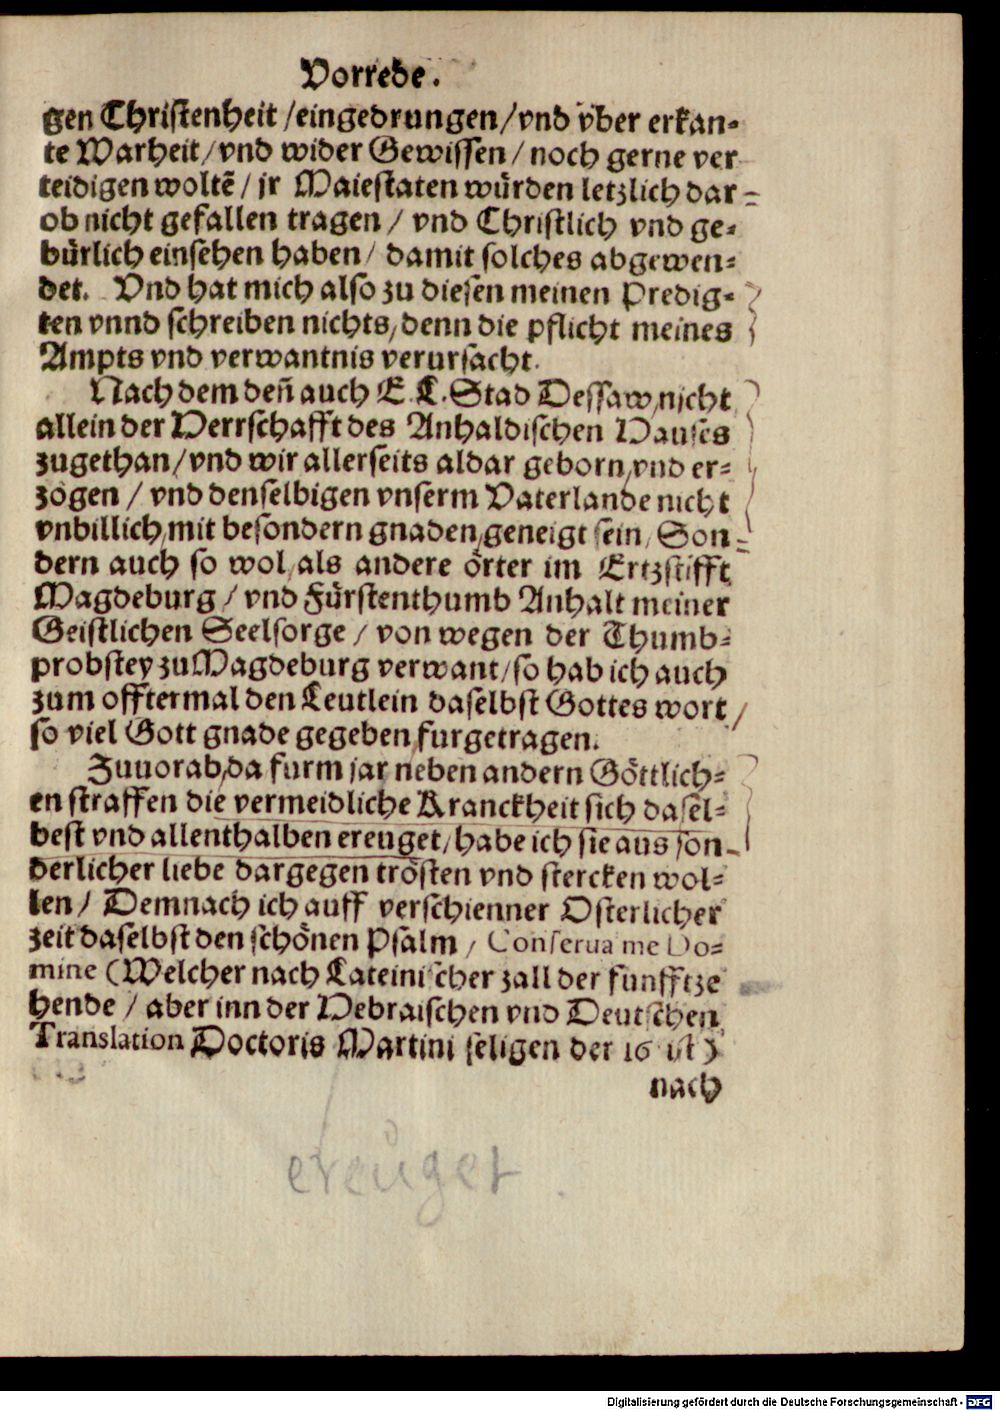 Vorrede.
gen Christenheit / eingedrungen / vnd vber erkan-
te Warheit / vnd wider Gewissen / noch gerne ver
teidigen woltē / jr Maiestaten würden letzlich dar-
ob nicht gefallen tragen / vnd Christlich vnd ge-
bürlich einsehen haben / damit solches abgewen-
det. Vnd hat mich also zu diesen meinen Predig-
ten vnnd schreiben nichts, denn die pflicht meines
Ampts vnd verwantnis verursacht.
Nach dem deñ auch E. L. Stad Dessaw, nicht
allein der Herrschafft des Anhaldischen Hauses
zugethan / vnd wir allerseits aldar geborn, vnd er-
zogen / vnd denselbigen vnserm Vaterlande nicht
vnbillich, mit besondern gnaden, geneigt sein, Son-
dern auch so wol, als andere örter im Ertzstifft
Magdeburg / vnd Fürstenthumb Anhalt meiner
Geistlichen Seelsorge / von wegen der Thumb-
probstey zu Magdeburg verwant / so hab ich auch
zum offtermal den Leutlein daselbst Gottes wort /
so viel Gott gnade gegeben, furgetragen.
Zuuorab, da furm jar neben andern Göttlich-
en straffen die vermeidliche Kranckheit sich dasel-
best vnd allenthalben ereuget, habe ich sie aus son-
derlicher liebe dargegen trösten vnd stercken wol-
len / Demnach ich auff verschienner Osterlicher
zeit daselbst den schönen Psalm / Conserua me Do-
mine (Welcher nach Lateinischer zall der funfftze
hende / aber inn der Hebraischen vnd Deutschen
Translation Doctoris Martini seligen der 16 ist)
nach
ereuget.
Digitalisierung gefördert durch die Deutsche Forschungsgemeinschaft - DFG